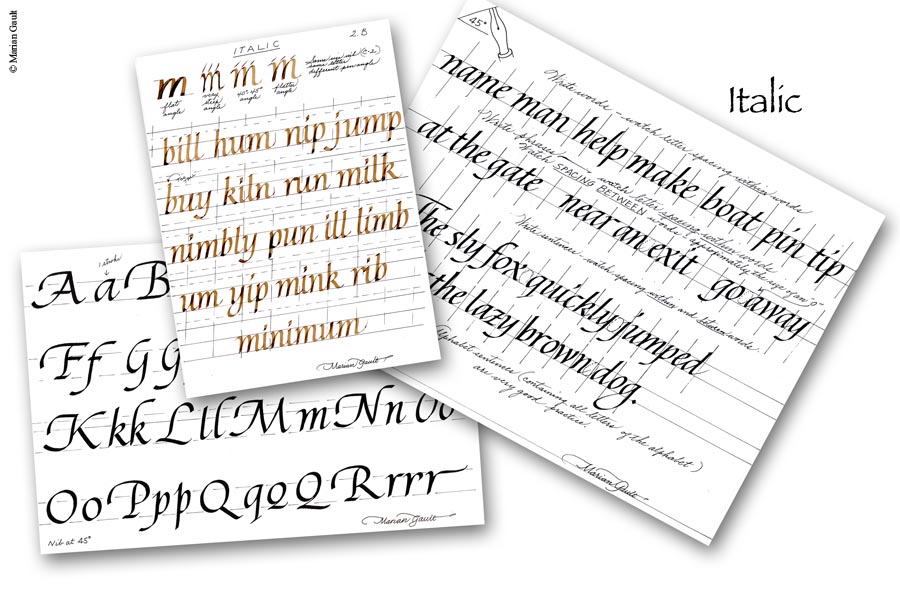 © Marian Gault
Italic
ITALIC
2.B
m m m m
flat angle
very steep angle
40°-45° angle
flatter angle
same size nib (C-2)
same letter
different pen angle
bill hum nip jump
buy kiln run milk
nimbly pun ill limb
um yip mink rib
minimum
Marian Gault
45°
Write words - watch letter spacing within words
name man help make boat pin tip
Write phrases - watch letter spacing within words
Watch SPACING BETWEEN words: approximately the size of an "o"
at the gate near an exit go away
Write sentences: watch spacing within and between words
The sly fox quickly jumped
the lazy brown dog.
Alphabet sentences (containing all letters of the alphabet)
are very good practice!
Marian Gault
1 stroke
A a B
Ff G g
Kkk Lll M m N n Oo
Oo Ppp Q q Q Rrrr
Nib at 45°
Marian Gault